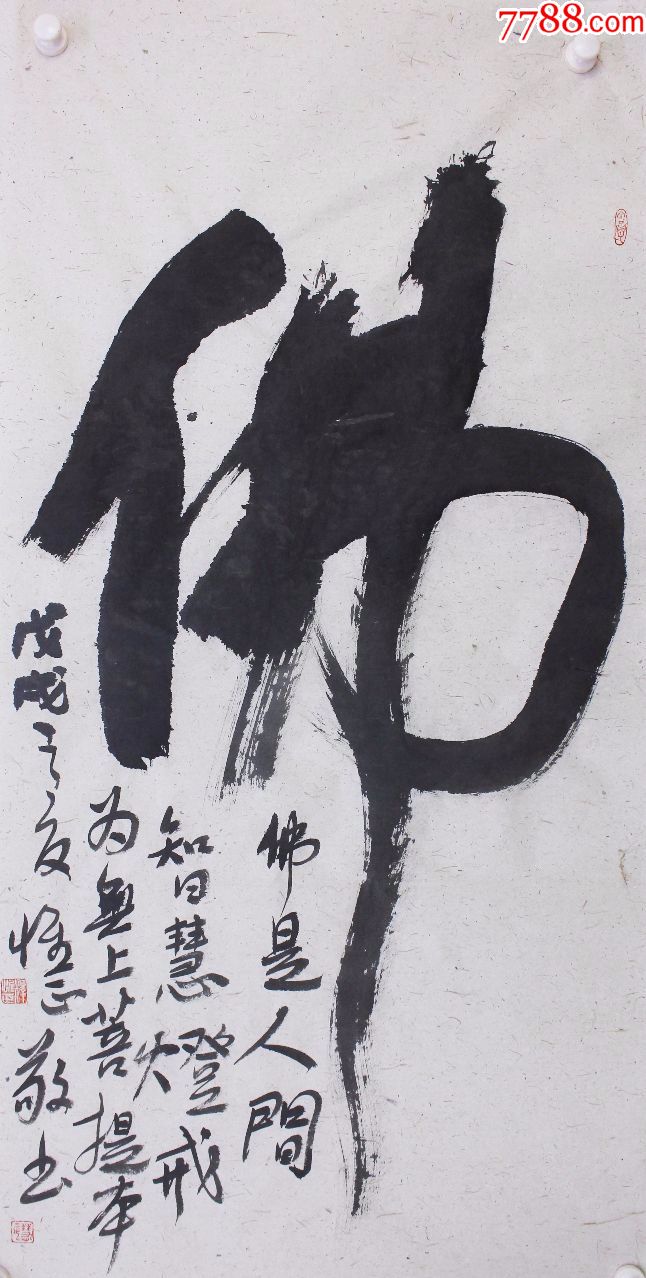 7788.com
佛
佛是人間
智慧燈戒
为無上菩提本
戊戌之夏惟正敬书